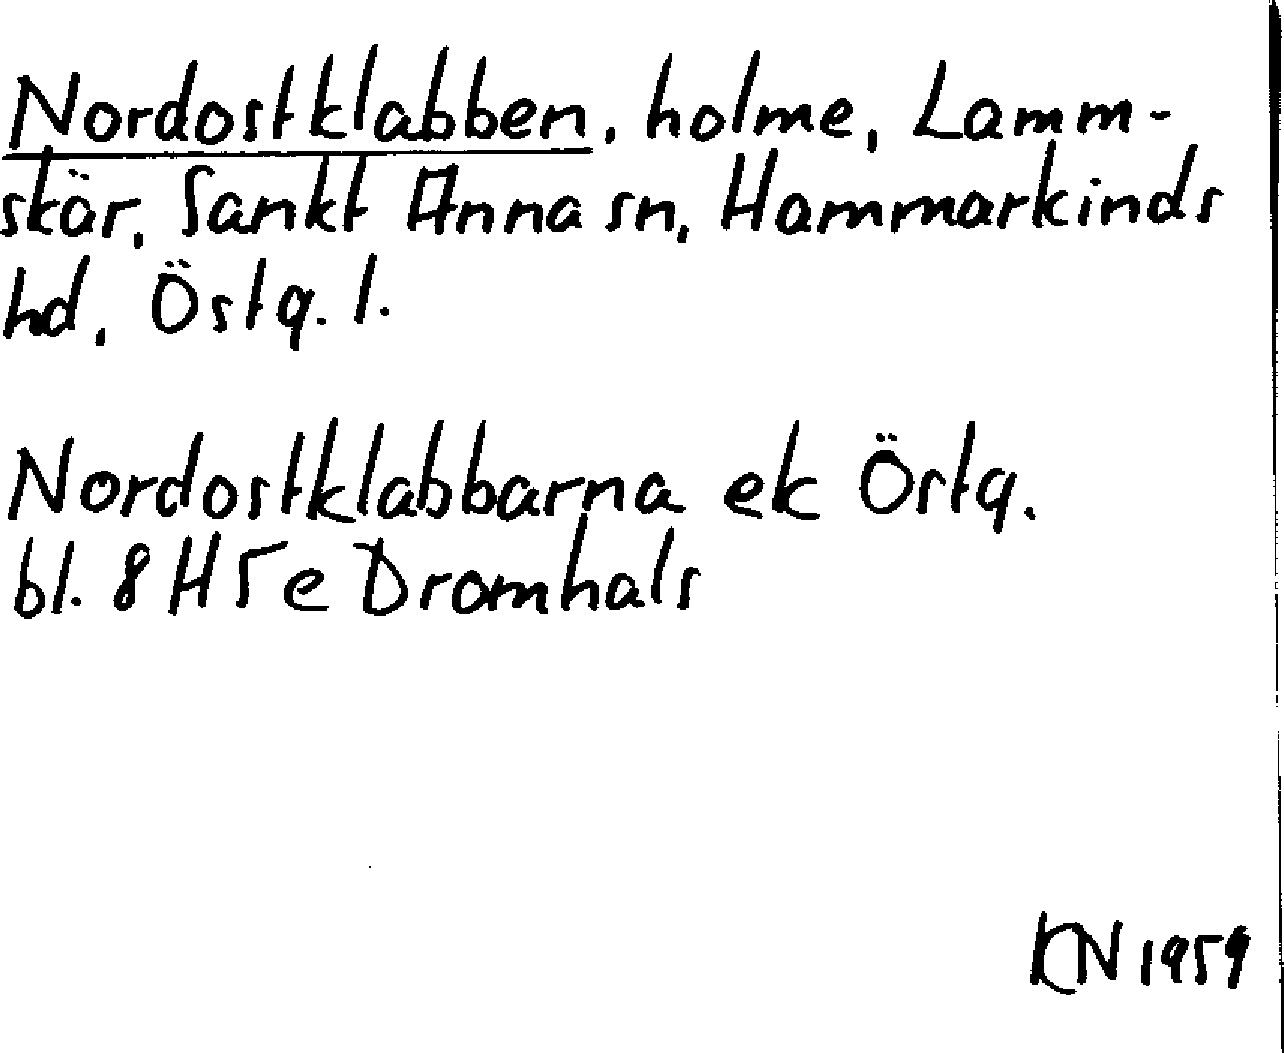 Nordostklabben, holme, Lamm-
skär, Sankt Anna sn, Hammarkinds
hd, Östg. l.
Nordostklabbarna ek Östg.
bl. 8 H 5 e Dromhals
KN 1959